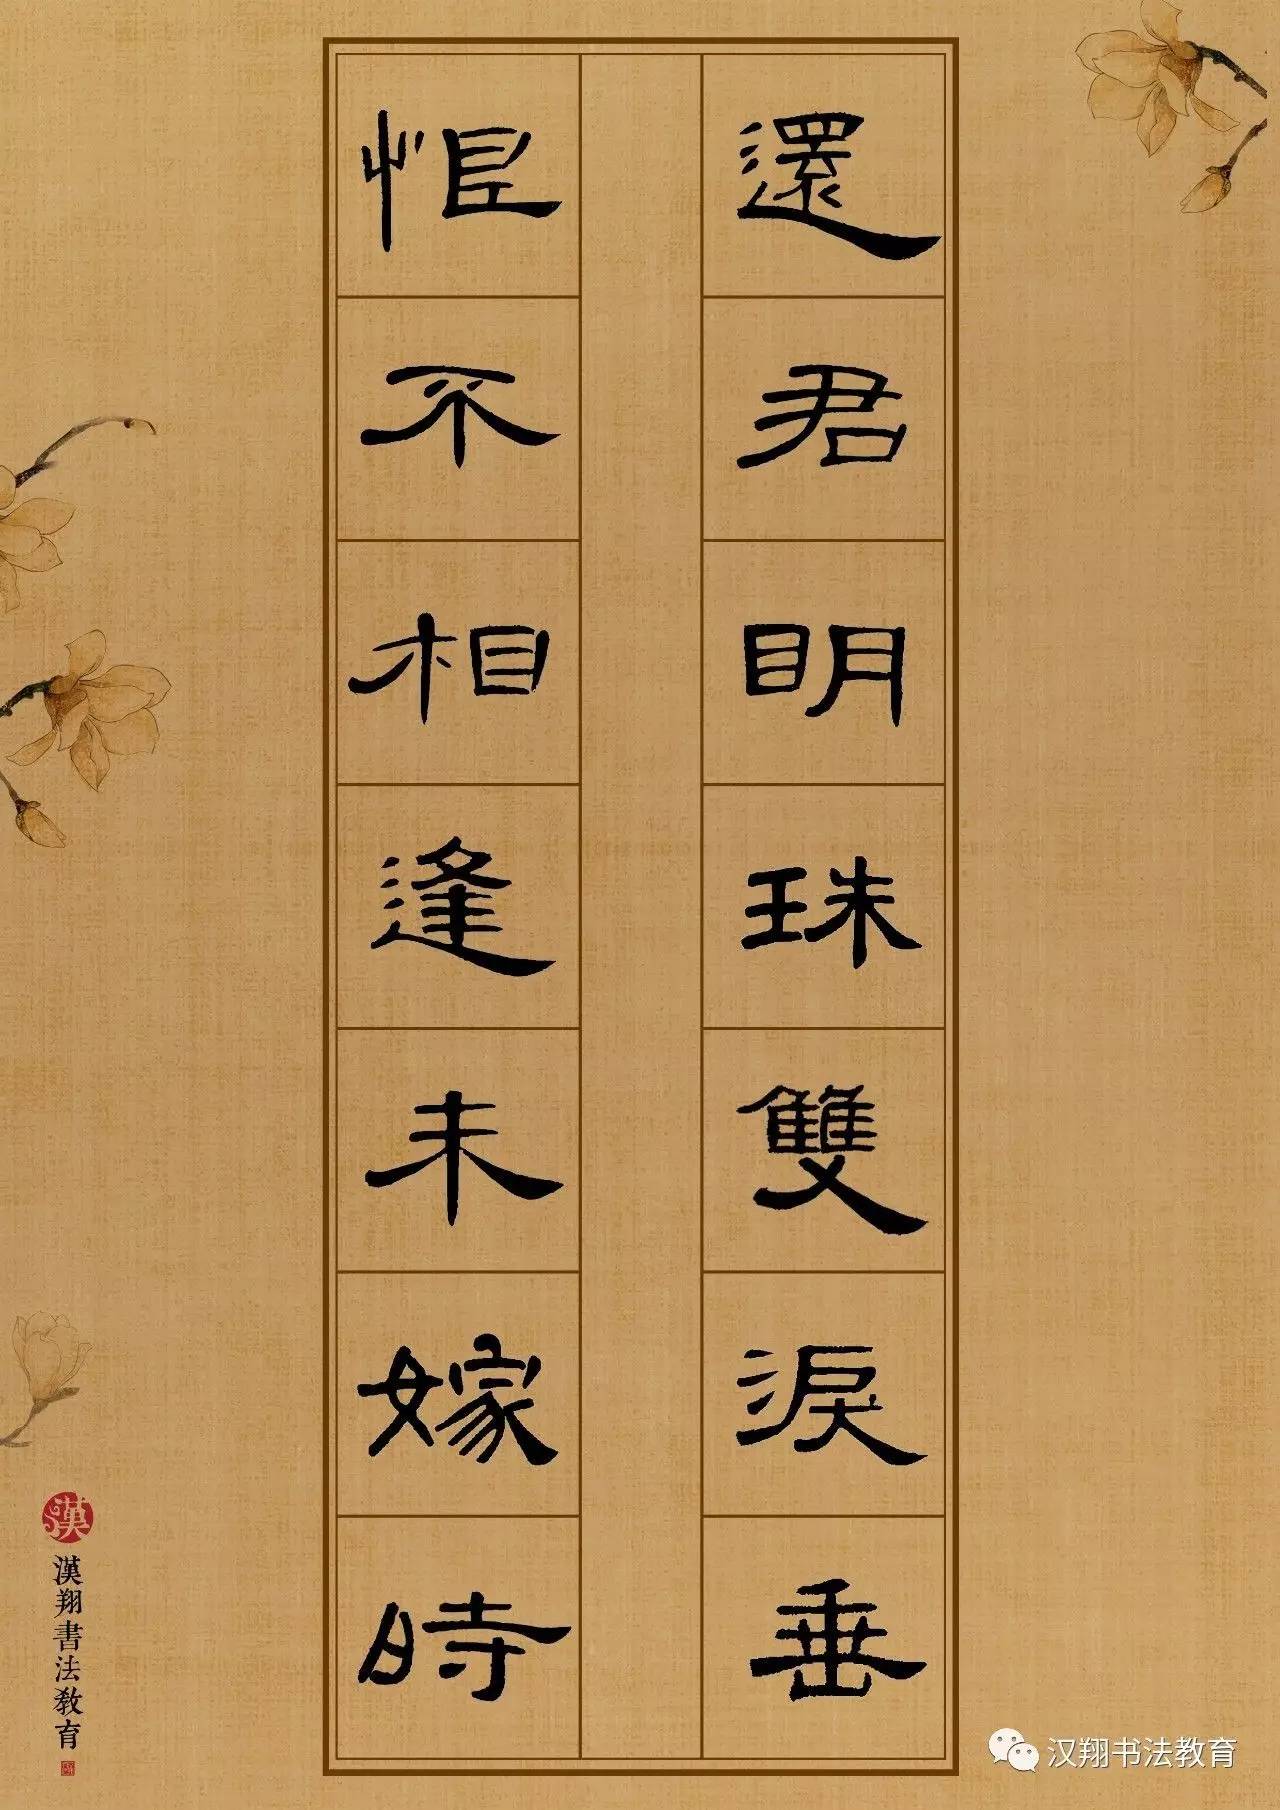 還君明珠雙淚垂
恨不相逢未嫁時
漢
漢翔書法教育
汉翔书法教育